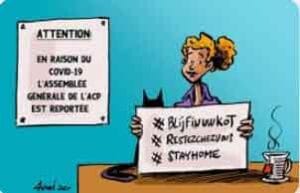 ATTENTION
EN RAISON DU
COVID-19
L'ASSEMBLÉE
GÉNÉRALE DE L'ACP
EST REPORTÉE
# BLIJFINUWKOT
# RESTEZCHEZVOUS
# STAYHOME